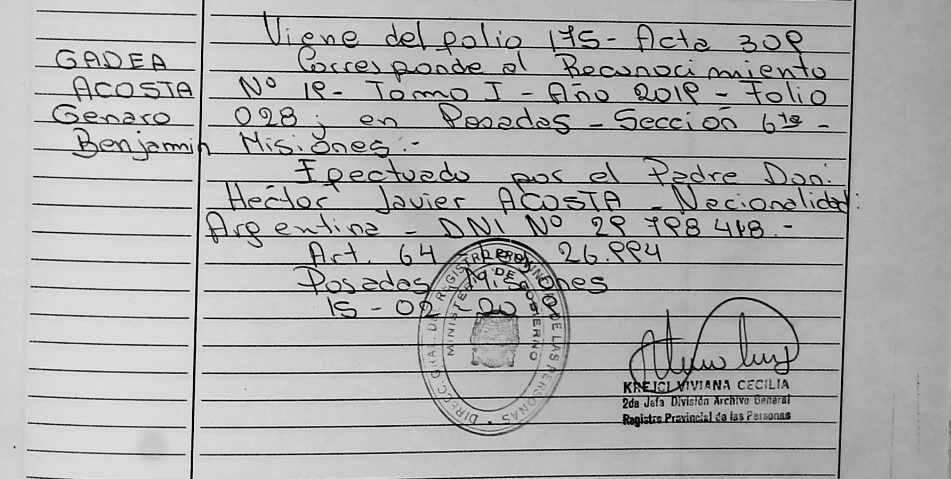 GADEA
ACOSTA
Genaro
Benjamin
Viene del folio 175 - Acta 309
Corresponde al Reconocimiento
Nº 19 - Tomo I - Año 2019 - Folio
028; en Posadas - Sección 6ta -
Misiones.-
Efectuado por el Padre Don:
Héctor Javier ACOSTA - Nacionalidad:
Argentina - DNI Nº 29 798 418.-
Art. 64 Ley 26.994
Posadas Misiones
15 - 02 - 2019
DIRECC. GRAL. DEL REGISTRO PROVINCIAL DE LAS PERSONAS
MINISTERIO DE GOBIERNO
KREJCI VIVIANA CECILIA
2da Jefa División Archivo General
Registro Provincial de las Personas